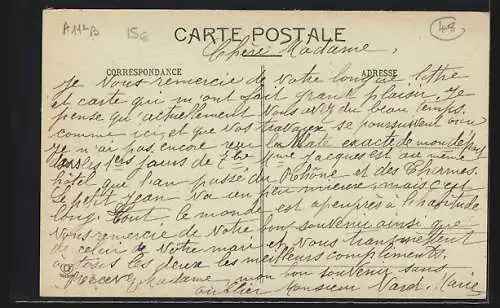 A112B
15€
CARTE POSTALE
45
Chère Madame,
CORRESPONDANCE
ADRESSE
Je vous remercie de votre longue lettre
et carte qui m'ont fait grand plaisir. Je
pense qu'actuellement vous avez du beau temps
comme ici, et que vos travaux se poursuivent bien
je n'ai pas encore reçu la date exacte de mon départ
dans les 1ers jours de 7bre Mme Jacques est au même
hôtel que l'an passé du Rhône et des Thermes.
Le petit Jean va un peu mieux, mais c'est
long. Tout le monde est à peu près à l'habitude
vous remercie de votre bon souvenir ainsi que
de celui de votre mari et vous transmettent
à tous les deux les meilleurs compliments.
Recevez Madame mon bon souvenir sans
oublier Monsieur